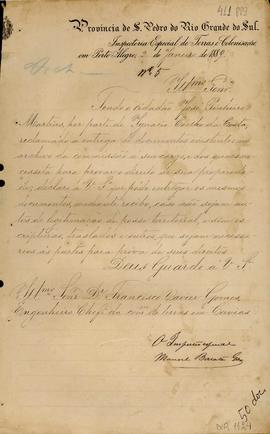 411 993
Provincia de S. Pedro do Rio Grande do Sul.
Inspectoria Especial de Terras e Colonisação
em Porto Alegre, 2 de Janeiro de 1889.
Nº 5
Illmo Senr.
Tendo o cidadão José Pinheiro
Martins por parte de Ignacio Coelho da Costa,
reclamado a entrega de documentos existentes no
archivo da commissão a seu cargo, dos quaes ne-
cessita para provar o direito de sua proprieda-
de, declaro a V. Sª que pode entregar os mesmos
documentos mediante recibo, caso não sejam au-
tos de legitimação de posse territorial, e sim es-
cripturas, traslados e outros, que sejam necessa-
rios ás partes para prova de seus direitos.
Deus Guarde a V. Sª
Illmo Senr. Dr. Francisco Xavier Gomes
Engenheiro Chefe da com. de terras em Caxias
O Inspector especial
Manoel
50 doc